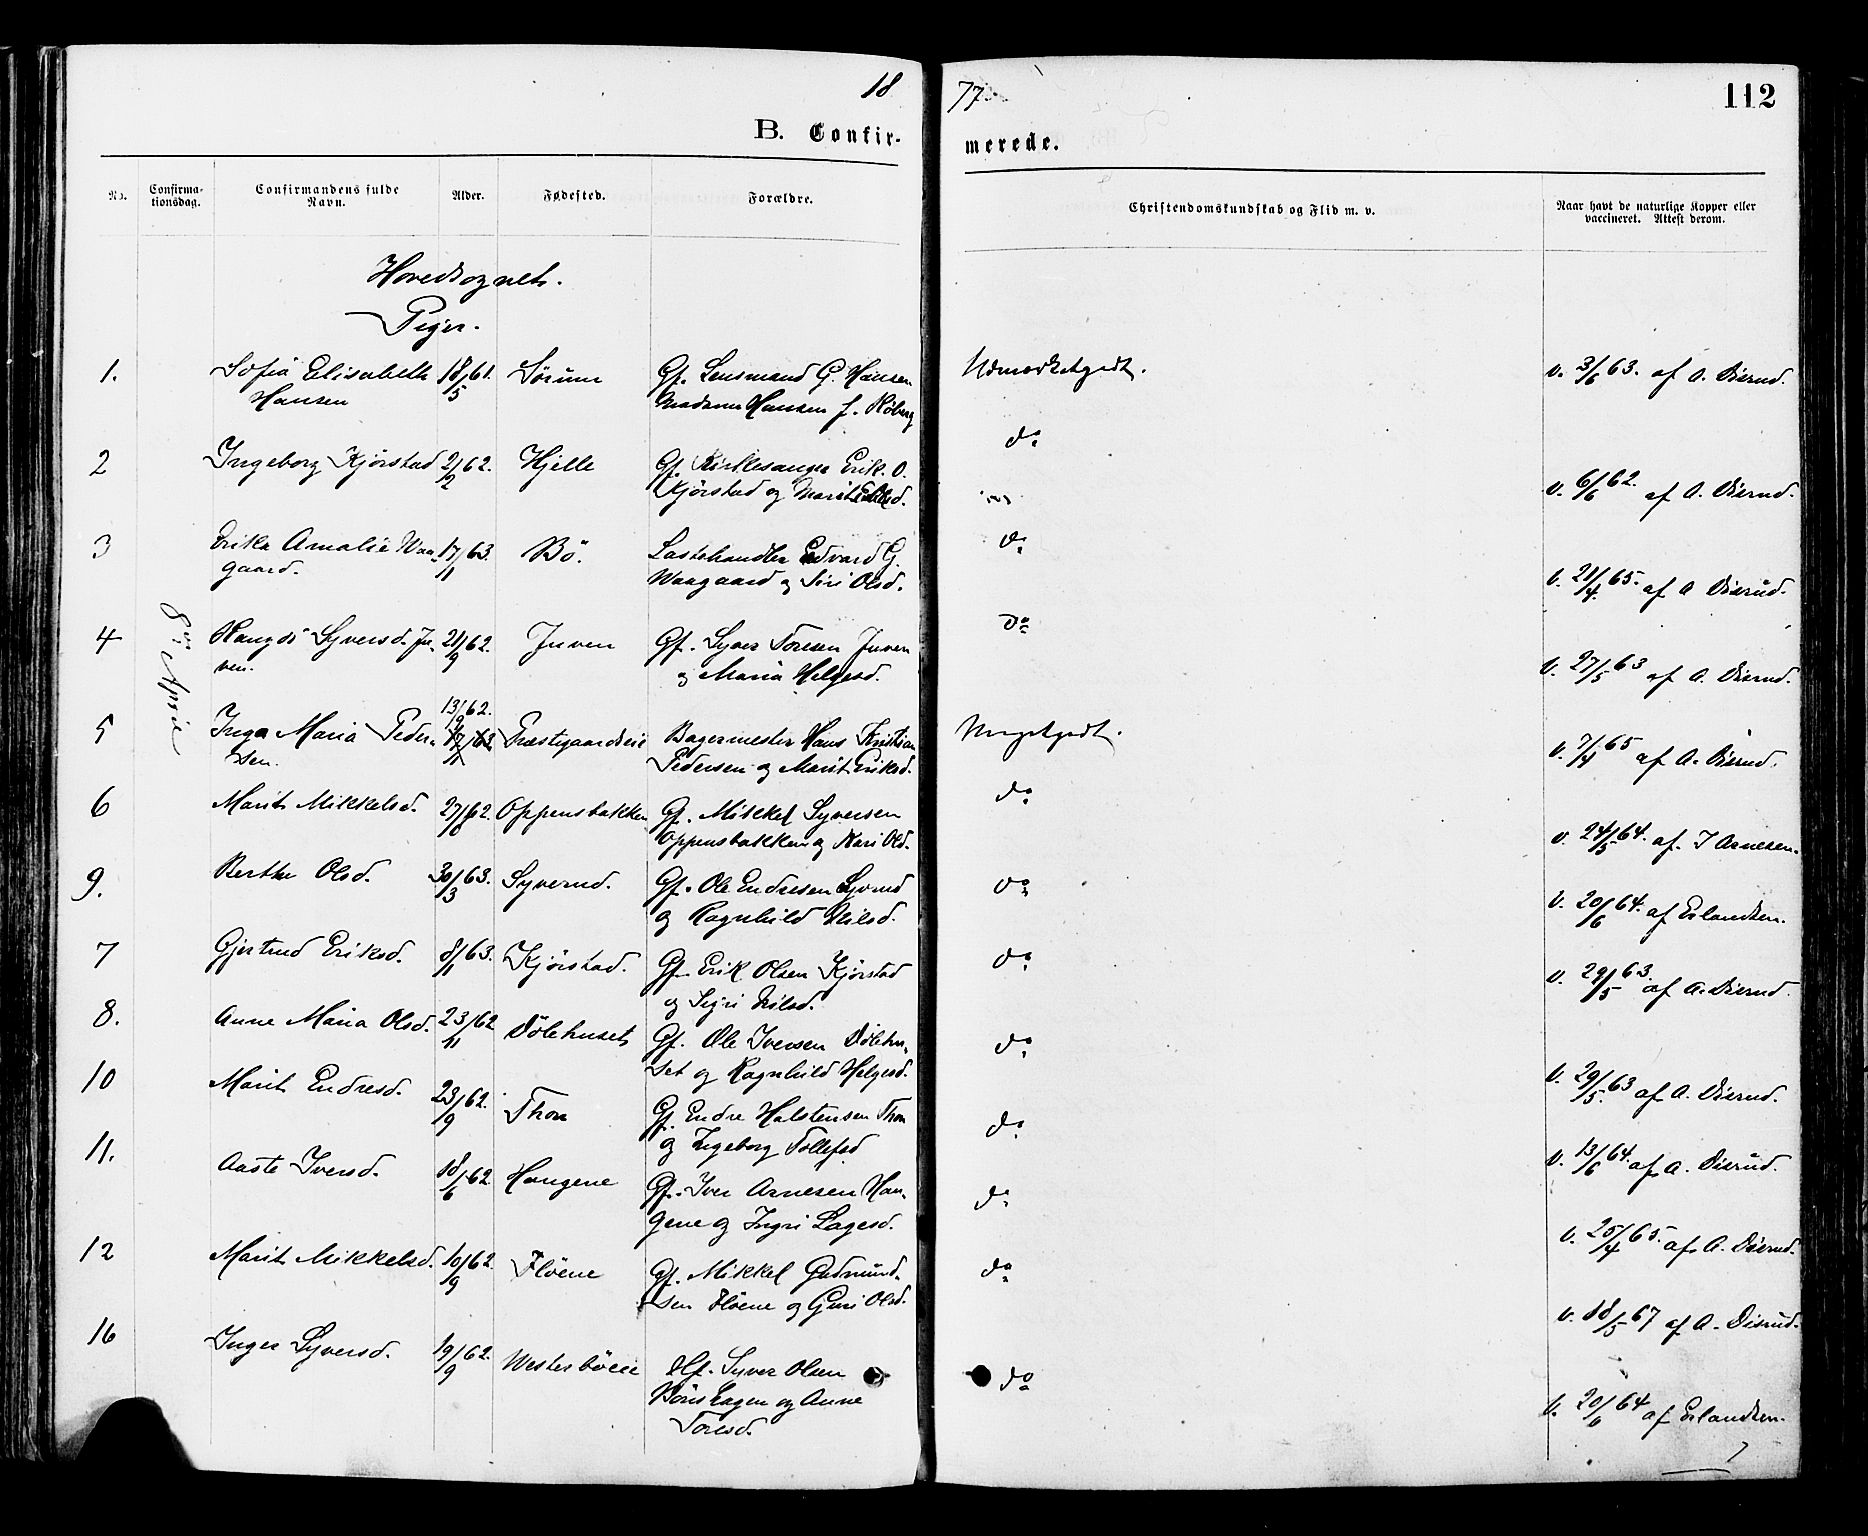 18
77
112
B. Confir-
merede.
No.
Confirma-
tionsdag.
Confirmandens fulde
Navn.
Alder.
Fødested.
Forældre.
Christendomskundskab og Flid m. v.
Naar havt de naturlige Kopper eller
vaccineret. Attest derom.
Hovedsognet.
Piger.
8de April
1. Sofia Elisabeth 18/5 61. Sörum Gf. Lensmand G. Hansen Udmærketgodt. v. 3/6 63. af A. Disrud.
Hansen Madame Hansen f. Röberg
2 Ingeborg Kjörstad 2/2 62. Hjelle Gf. Kirkesanger Erik O. do v. 6/6 62. af A. Disrud.
Kjörstad og Marit
3 Erika Amalie Waa- 17/11 63. Bö. Edvard G. do v. 21/4 65. af A Disrud.
gaard. Waagaard og Siri Olsd.
4 Rangdi Syversd. Ju- 21/9 62. Juven Gf. Syver Toresen Juven do v. 27/5 63 af A. Disrud.
ven. og Maria Helgesd.
13/9 62.
5 Inga Maria Peder- Præstegaardseie Bagermester Hans Kristian Megetgodt. v. 7/4 65 af A. Disrud.
sen. Pedersen og Marit Eriksd.
6 Marit Mikkelsd. 27/8 62. Oppensbakken Gf. Mikkel Syversen do v. 24/5 64. af J Arnesen.
Oppensbakken og Kari Olsd.
9. Berthe Olsd. 30/3 63. Syverud. Gf. Ole Endresen Syverud do v. 20/6 64. af Erlandsen.
og Ragnhild Nilsd.
7 Gjertrud Eriksd. 8/1 63. Kjörstad. Gf. Erik Olsen Kjörstad do v. 29/5 63. af A. Disrud.
og Sigri Nilsd.
8. Anne Maria Olsd. 23/11 62 Dölehuset Gf. Ole Iversen Dölehu- do v. 29/5 63 af A. Disrud.
set og Ragnhild Helgesd.
10 Marit Endresd. 23/9 62. Thon Gf. Endre Halstensen Thon do v. 13/6 64. af A. Disrud.
og Ingeborg Tollefsd
11. Aaste Iversd. 18/6 62. Haugene Gf. Iver Arnesen Hau- do v. 25/4 65. af A. Disrud.
gene og Ingri Lagesd.
12 Marit Mikkelsd. 10/9 62. Flöene Gf. Mikkel Gudmund- do v. 18/5 67 af A. Disrud.
sen Flöene og Guri Olsd.
16 Inger Syversd. 19/9 62. Westerböeie Hf. Syver Olsen do v. 20/6 64 af Erlandsen.
og Anne
Toresd.